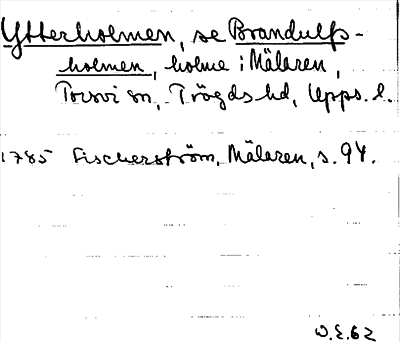 Ytterholmen, se Brandulfs-
holmen, holme i Mälaren,
Torsvi sn, Trögds hd, Upps. l.
1785 Fischerström, Mälaren, s. 94.
W.E.62